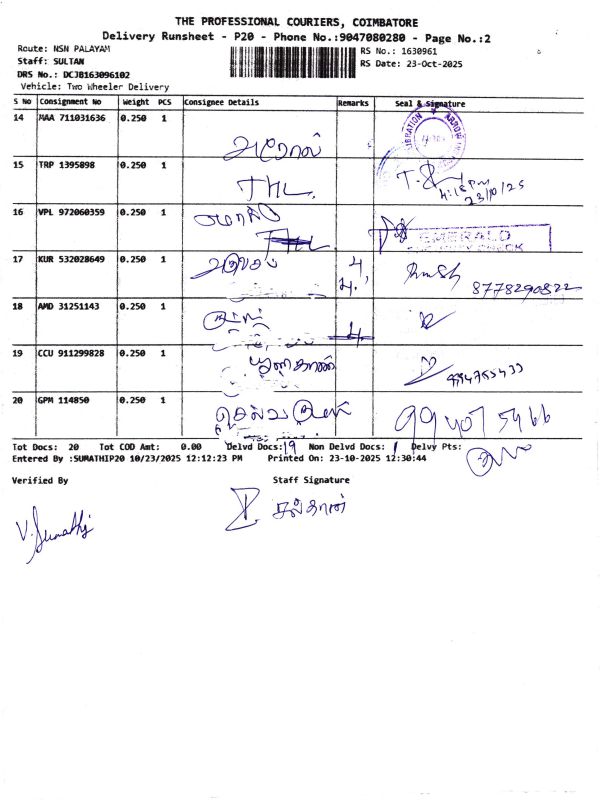 THE PROFESSIONAL COURIERS, COIMBATORE
Delivery Runsheet - P20 - Phone No.:9047080280 - Page No.:2
Route: NSN PALAYAM
RS No.: 1630961
Staff: SULTAN
RS Date: 23-Oct-2025
DRS No.: DCJB163096102
Vehicle: Two Wheeler Delivery
S No Consignment No Weight PCS Consignee Details Remarks Seal & Signature
14 MAA 711031636 0.250 1
15 TRP 1395898 0.250 1 THL. 4:15 pm
23/10/25
16 VPL 972060359 0.250 1 THL EMERALD
17 KUR 532028649 0.250 1 8778290822
18 AMD 31251143 0.250 1
19 CCU 911299828 0.250 1
20 GPM 114850 0.250 1 99407 5466
Tot Docs: 20 Tot COD Amt: 0.00 Delvd Docs: 19 Non Delvd Docs: 1 Delvy Pts:
Entered By :SUMATHIP20 10/23/2025 12:12:23 PM Printed On: 23-10-2025 12:30:44
Verified By Staff Signature
V. Sumathi சுல்தான்